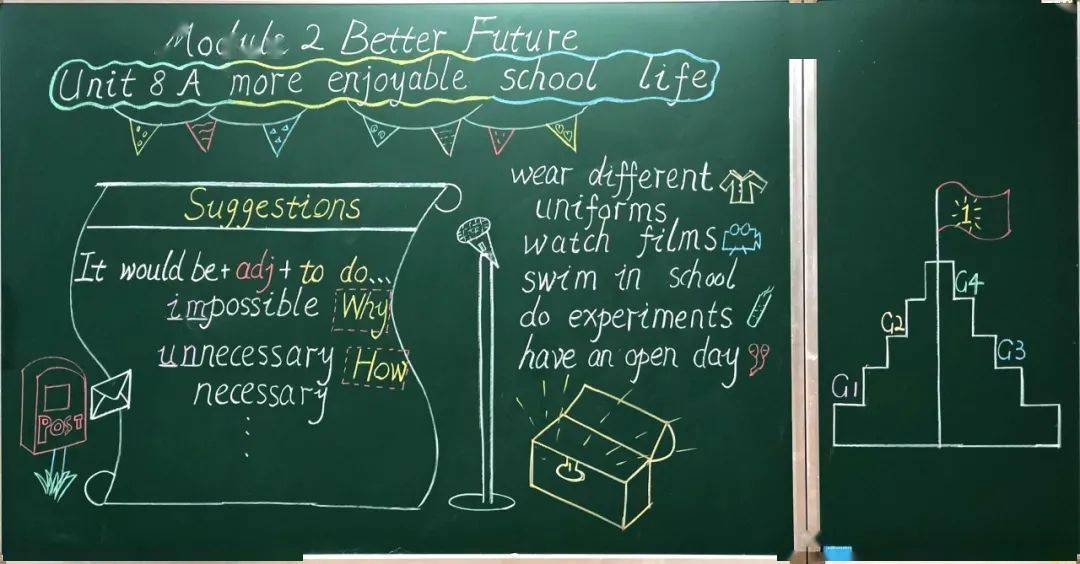 Module 2 Better Future
Unit 8 A more enjoyable school life
Suggestions
It would be + adj + to do...
impossible Why
unnecessary How
necessary
POST
wear different
uniforms
watch films
swim in school
do experiments
have an open day
1
G4
G2
G3
G1